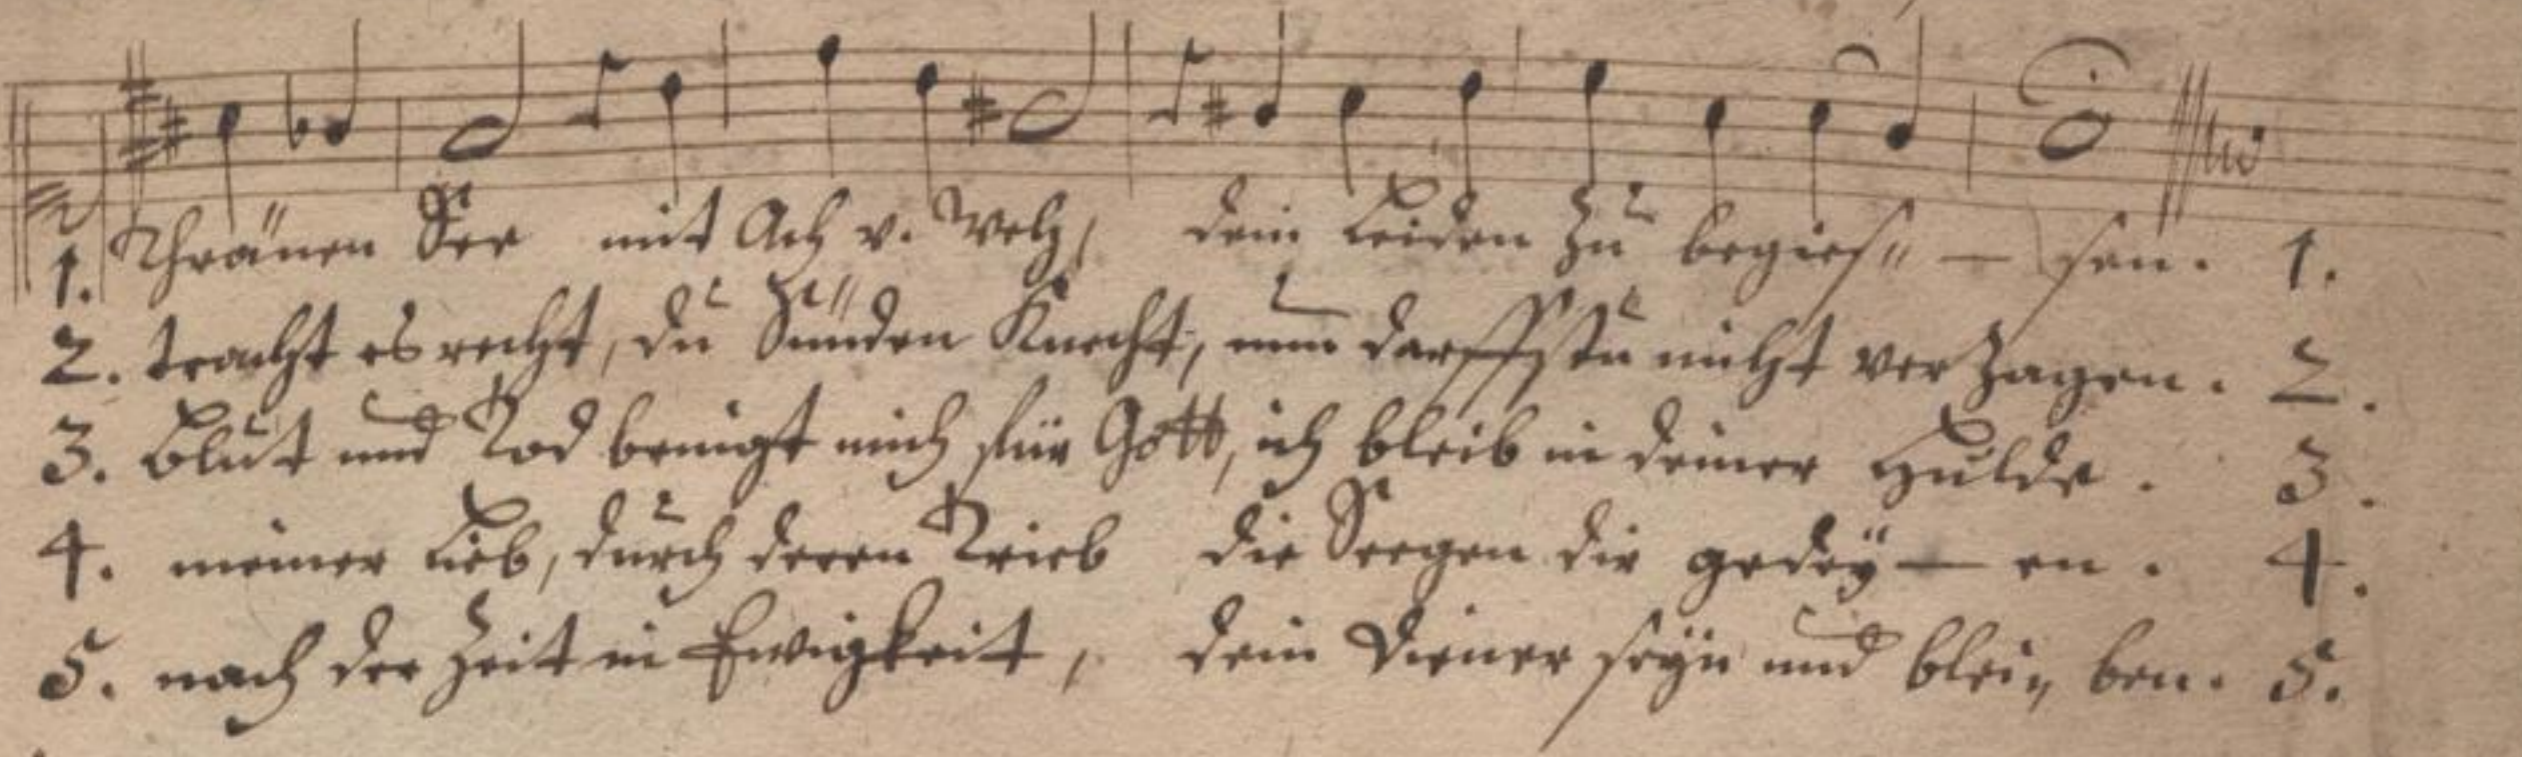 1. Thränen See mit Ach v. Weh, dein Leiden zu begies„ — sen. 1.
2. tracht es recht, du Sünden Knecht, nun darffstu nicht verzagen. 2.
3. Blut und Tod bringt mich für Gott, ich bleib in deiner Hulde. 3.
4. meiner Lieb, durch deren Trieb die Seegen dir gedey — en. 4.
5. nach der Zeit in Ewigkeit, dein Diener seyn und blei„ ben. 5.